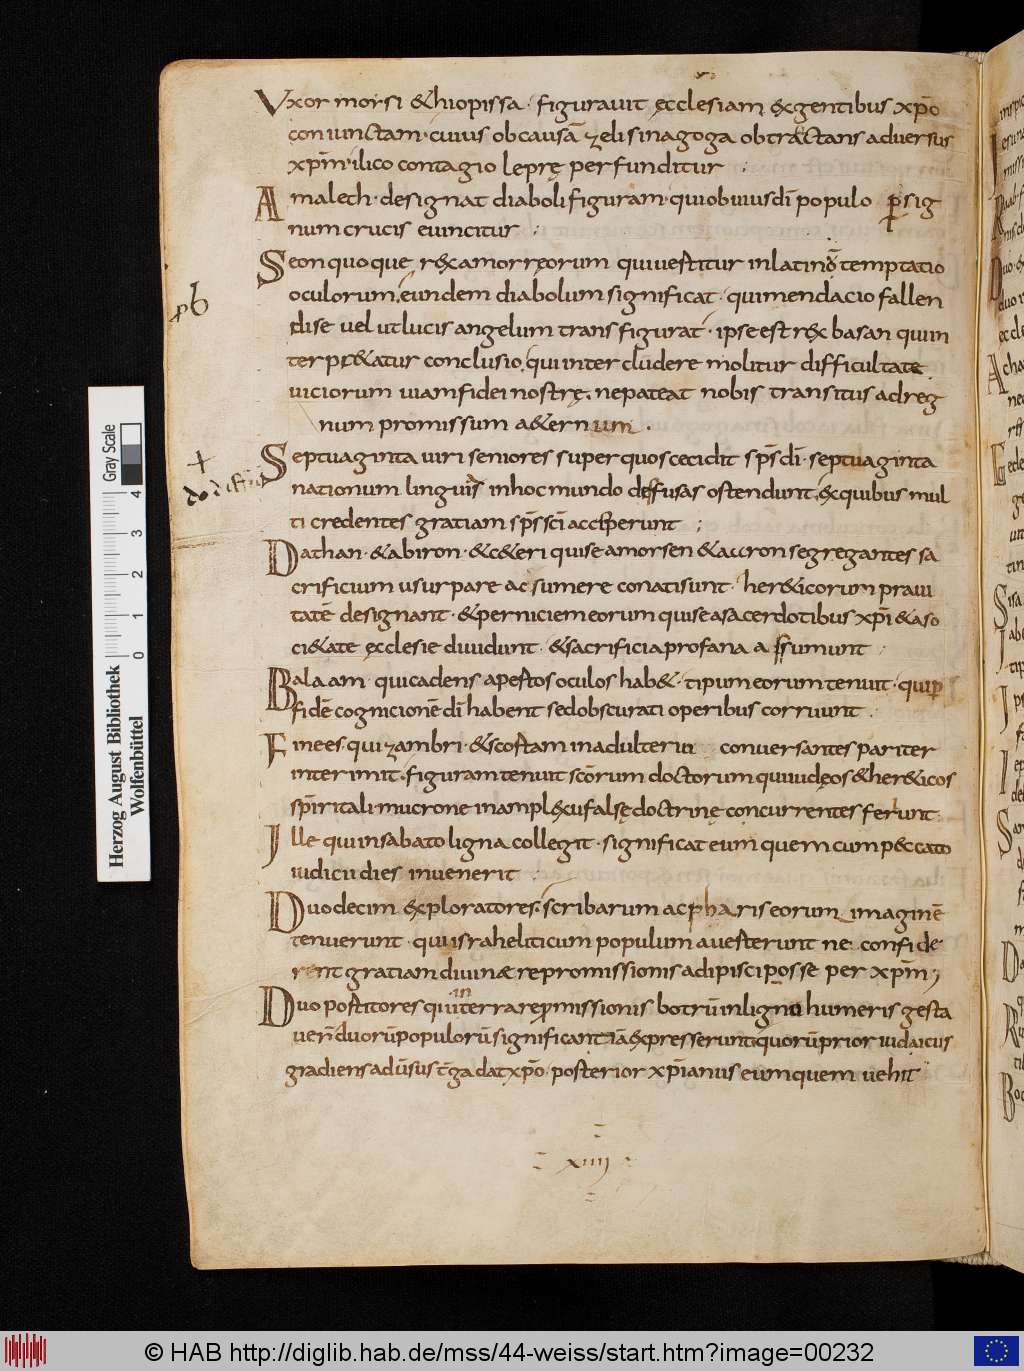 Uxor morsi &hiopissa· figurauit ęcclesiam exgentibus xp̄o
coniunctam· cuius obcausā zeli sinagoga obtractans aduersus
xp̄m· ilico contagio leprę perfunditur
Amalech· designat diaboli figuram· qui obuiusdī populo p̄ sig
num crucis euincitur
Seon quoque rex amorreorum qui uestitur in latinō temptatio
oculorum, eundem diabolum significat· qui mendacio fallen
di se uel ut lucis angelum transfigurat· ipse est rex basan qui in
terpr&atur conclusio, qui intercludere molitur difficultate
uiciorum uiam fidei nostrę, ne pateat nobis transitus ad reg
num promissum a&ernum.
Septuaginta uiri seniores super quos cecidit sp̄s dī· septuaginta
nationum linguis in hoc mundo deffusas ostendunt, ex quibus mul
ti credentes gratiam sp̄s scī acceperunt
Dathan· &abiron· &c&eri qui se a morsen &aaron segregantes sa
crificium usurpare ac sumere conati sunt· her&icorum praui
tatē designant· &perniciem eorum qui se a sacerdotibus xp̄i &a so
ci&ate ęcclesie diuidunt· &sacrificia profana assumunt
Balaam· qui cadens apertos oculos hab&· tipum eorum tenuit· qui p̄
fidē cognicionē dī habent sed obscurati operibus corruunt.
Finees· qui zambri· &scostam in adulterio conuersantes pariter
interimit· figuram tenuit scōrum doctorum qui iudęos &her&icos
sp̄iritali mucrone in amplexu falsę doctrinę concurrentes ferunt
Ille qui in sabato ligna collegit· significat eum quem cum peccato
iudicii dies inuenerit
Duodecim exploratores· scribarum ac phariseorum imaginē
tenuerunt· qui israheliticum populum auesterunt ne confide
rent gratiam diuinæ repromissionis adipisci posse per xp̄m;
Duo postitores qui in terra repmissionis botrū in ligno humeris gesta
uer̄ duorū populorū significantiā expresserunt quorū prior iudaicus
gradiens aduersus t̄ga dat xp̄o· posterior xp̄ianus eum quem uehit
xiiii
Gray Scale
4 3 2 1 0
Herzog August Bibliothek
Wolfenbüttel
© HAB http://diglib.hab.de/mss/44-weiss/start.htm?image=00232